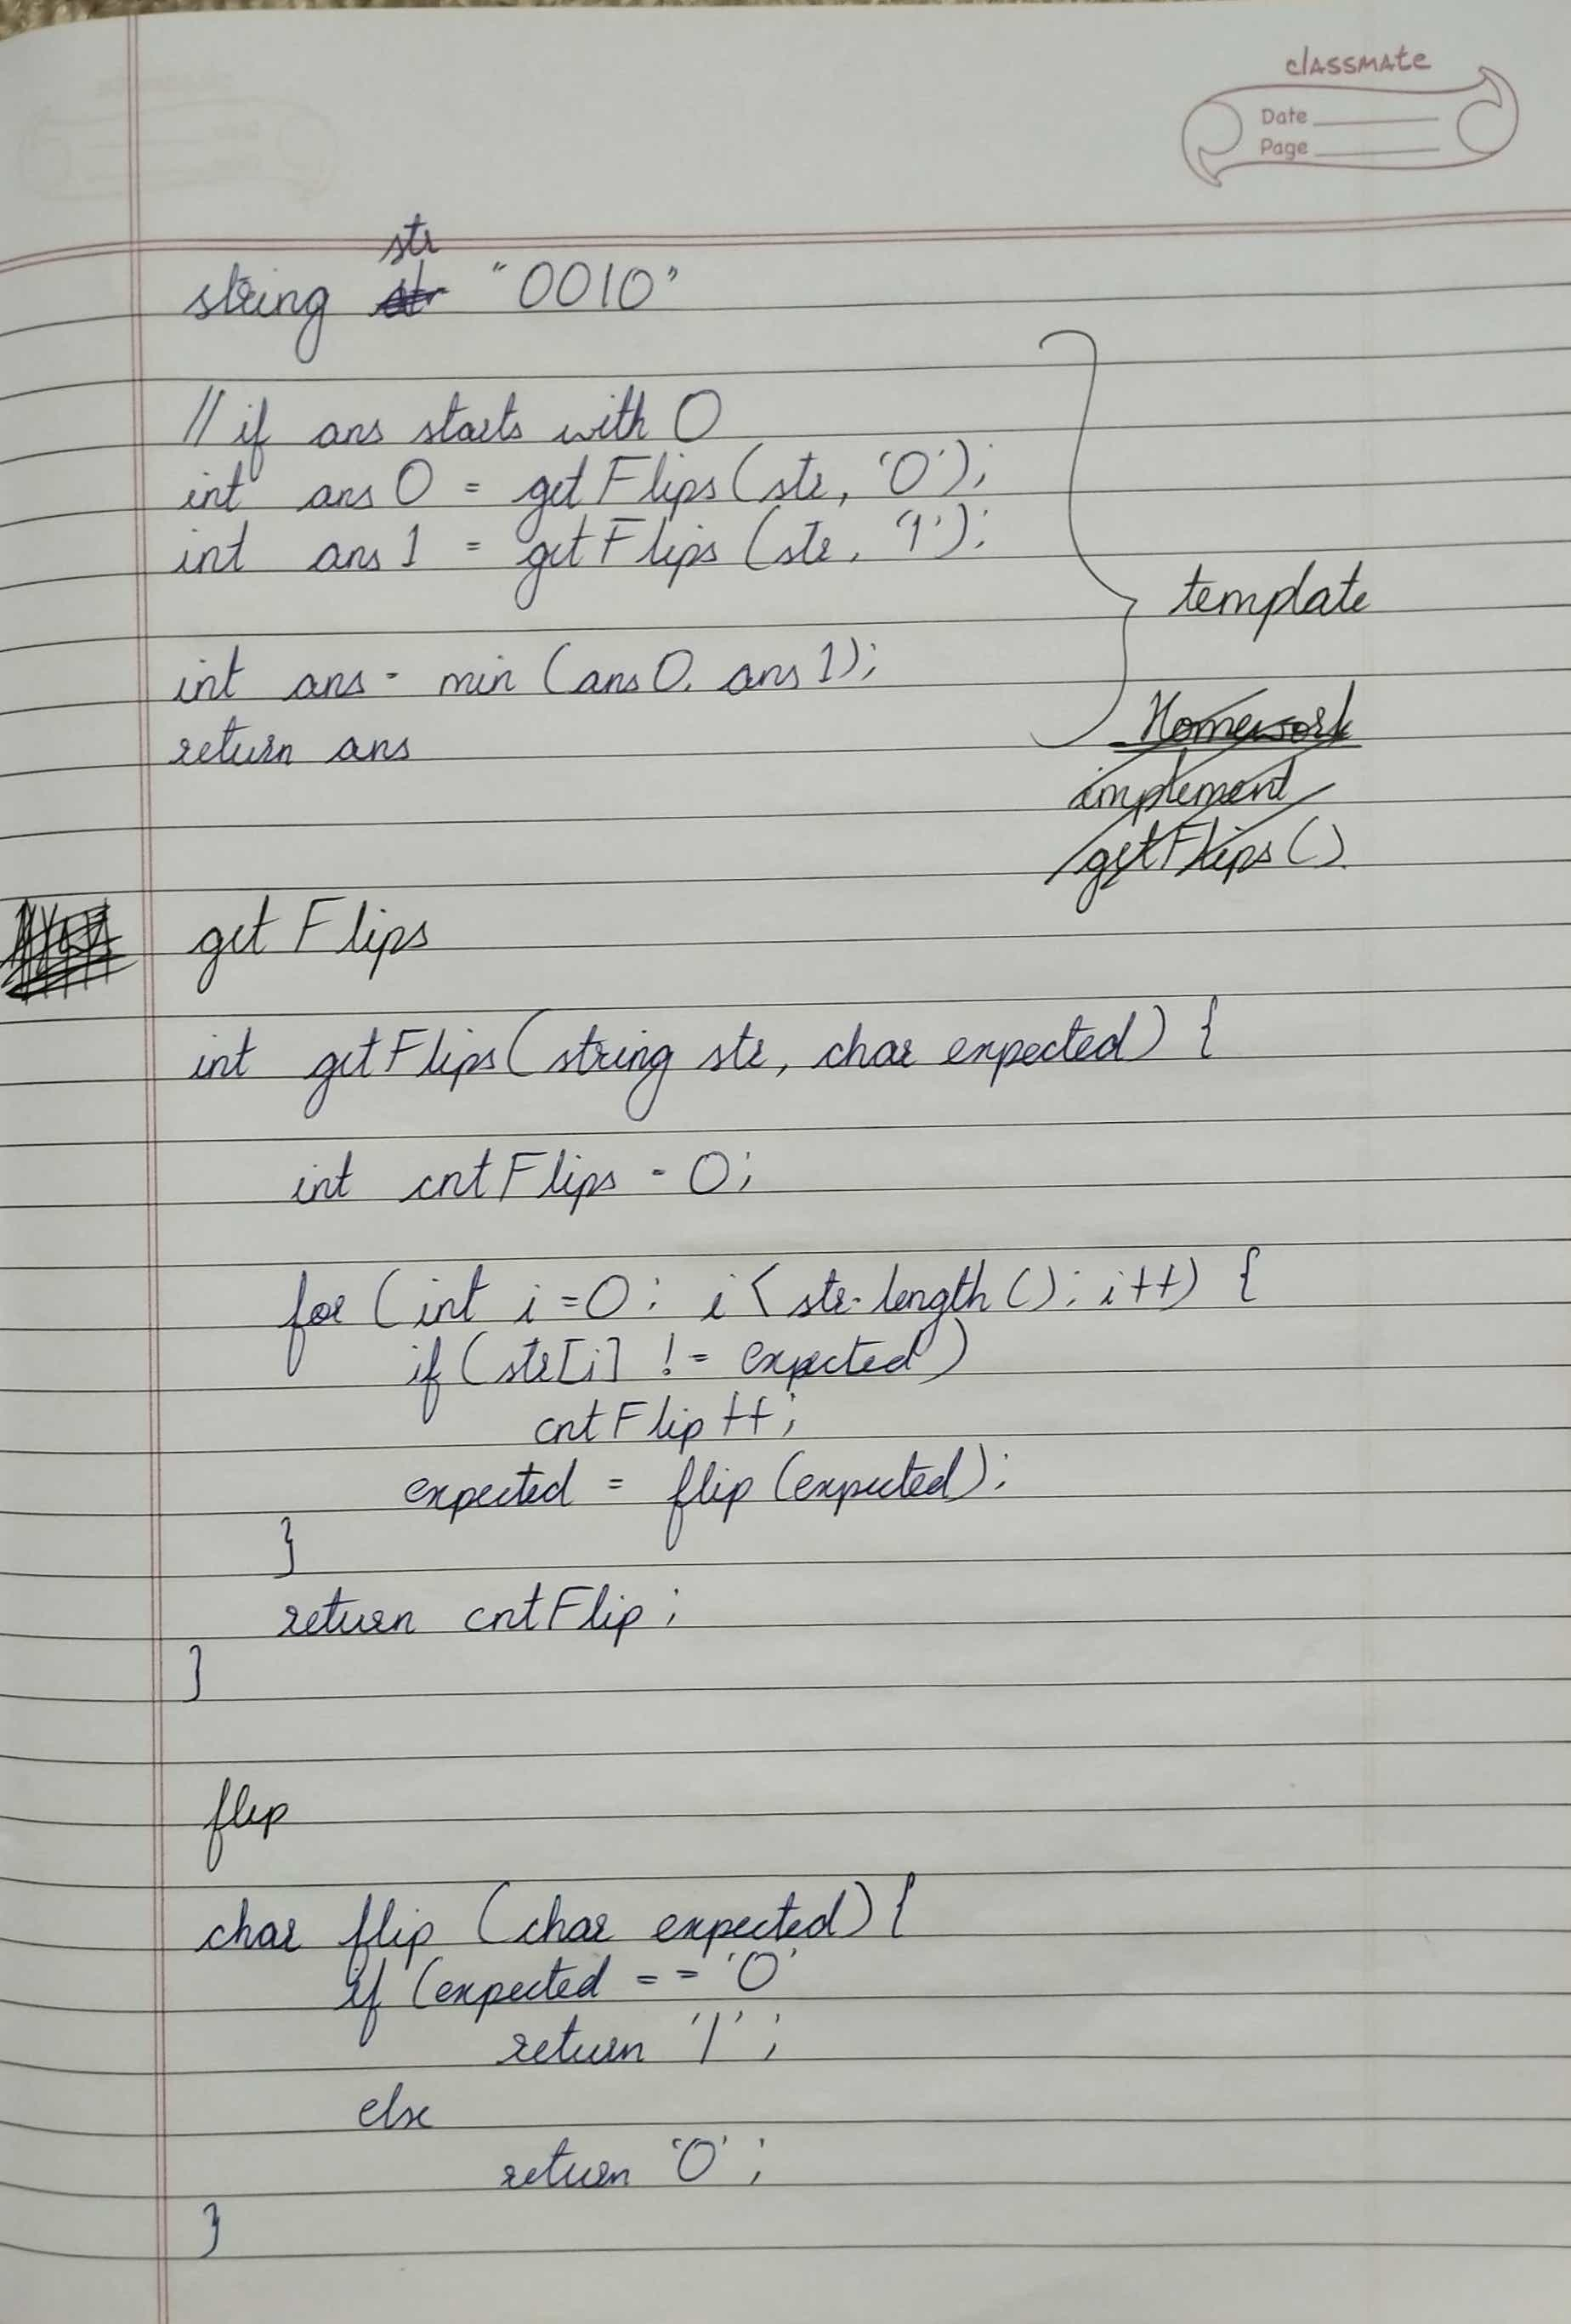 classmate
Date
Page
str
string str "0010"
// if ans starts with 0
int ans0 = getFlips(str, '0');
int ans1 = getFlips(str, '1');
template
int ans = min(ans0, ans1);
Homework
return ans
implement
getFlips()
getFlips
int getFlips(string str, char expected) {
int cntFlips = 0;
for (int i=0; i < str.length(); i++) {
if (str[i] != expected)
cntFlip++;
expected = flip(expected);
}
return cntFlip;
}
flip
char flip (char expected) {
if (expected == '0'
return '1';
else
return '0';
}